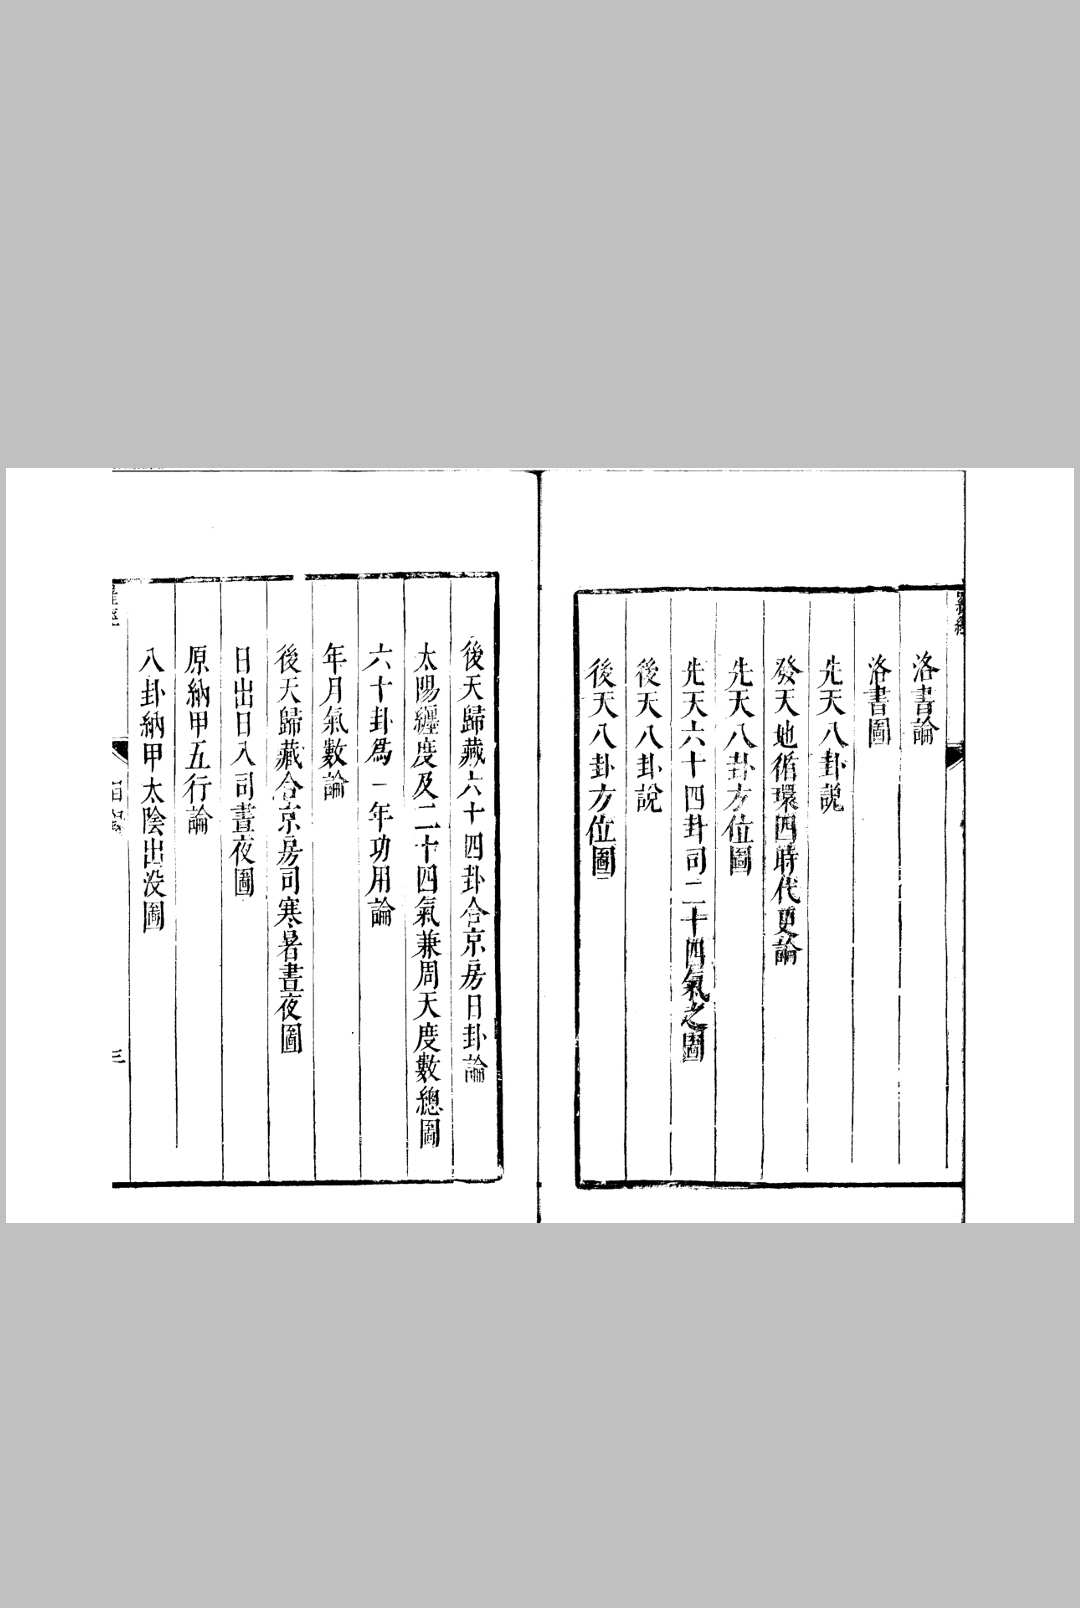 洛書論
洛書圖
先天八卦説
發天地循環四時代更論
先天八卦方位圖
先天六十四卦司二十四氣之圖
後天八卦説
後天八卦方位圖
後天歸藏六十四卦合京房日卦論
太陽纏度及二十四氣兼周天度數總圖
六十卦爲一年功用論
年月氣數論
後天歸藏合京房司寒暑晝夜圖
日出日入司晝夜圖
原納甲五行論
八卦納甲太陰出没圖
三